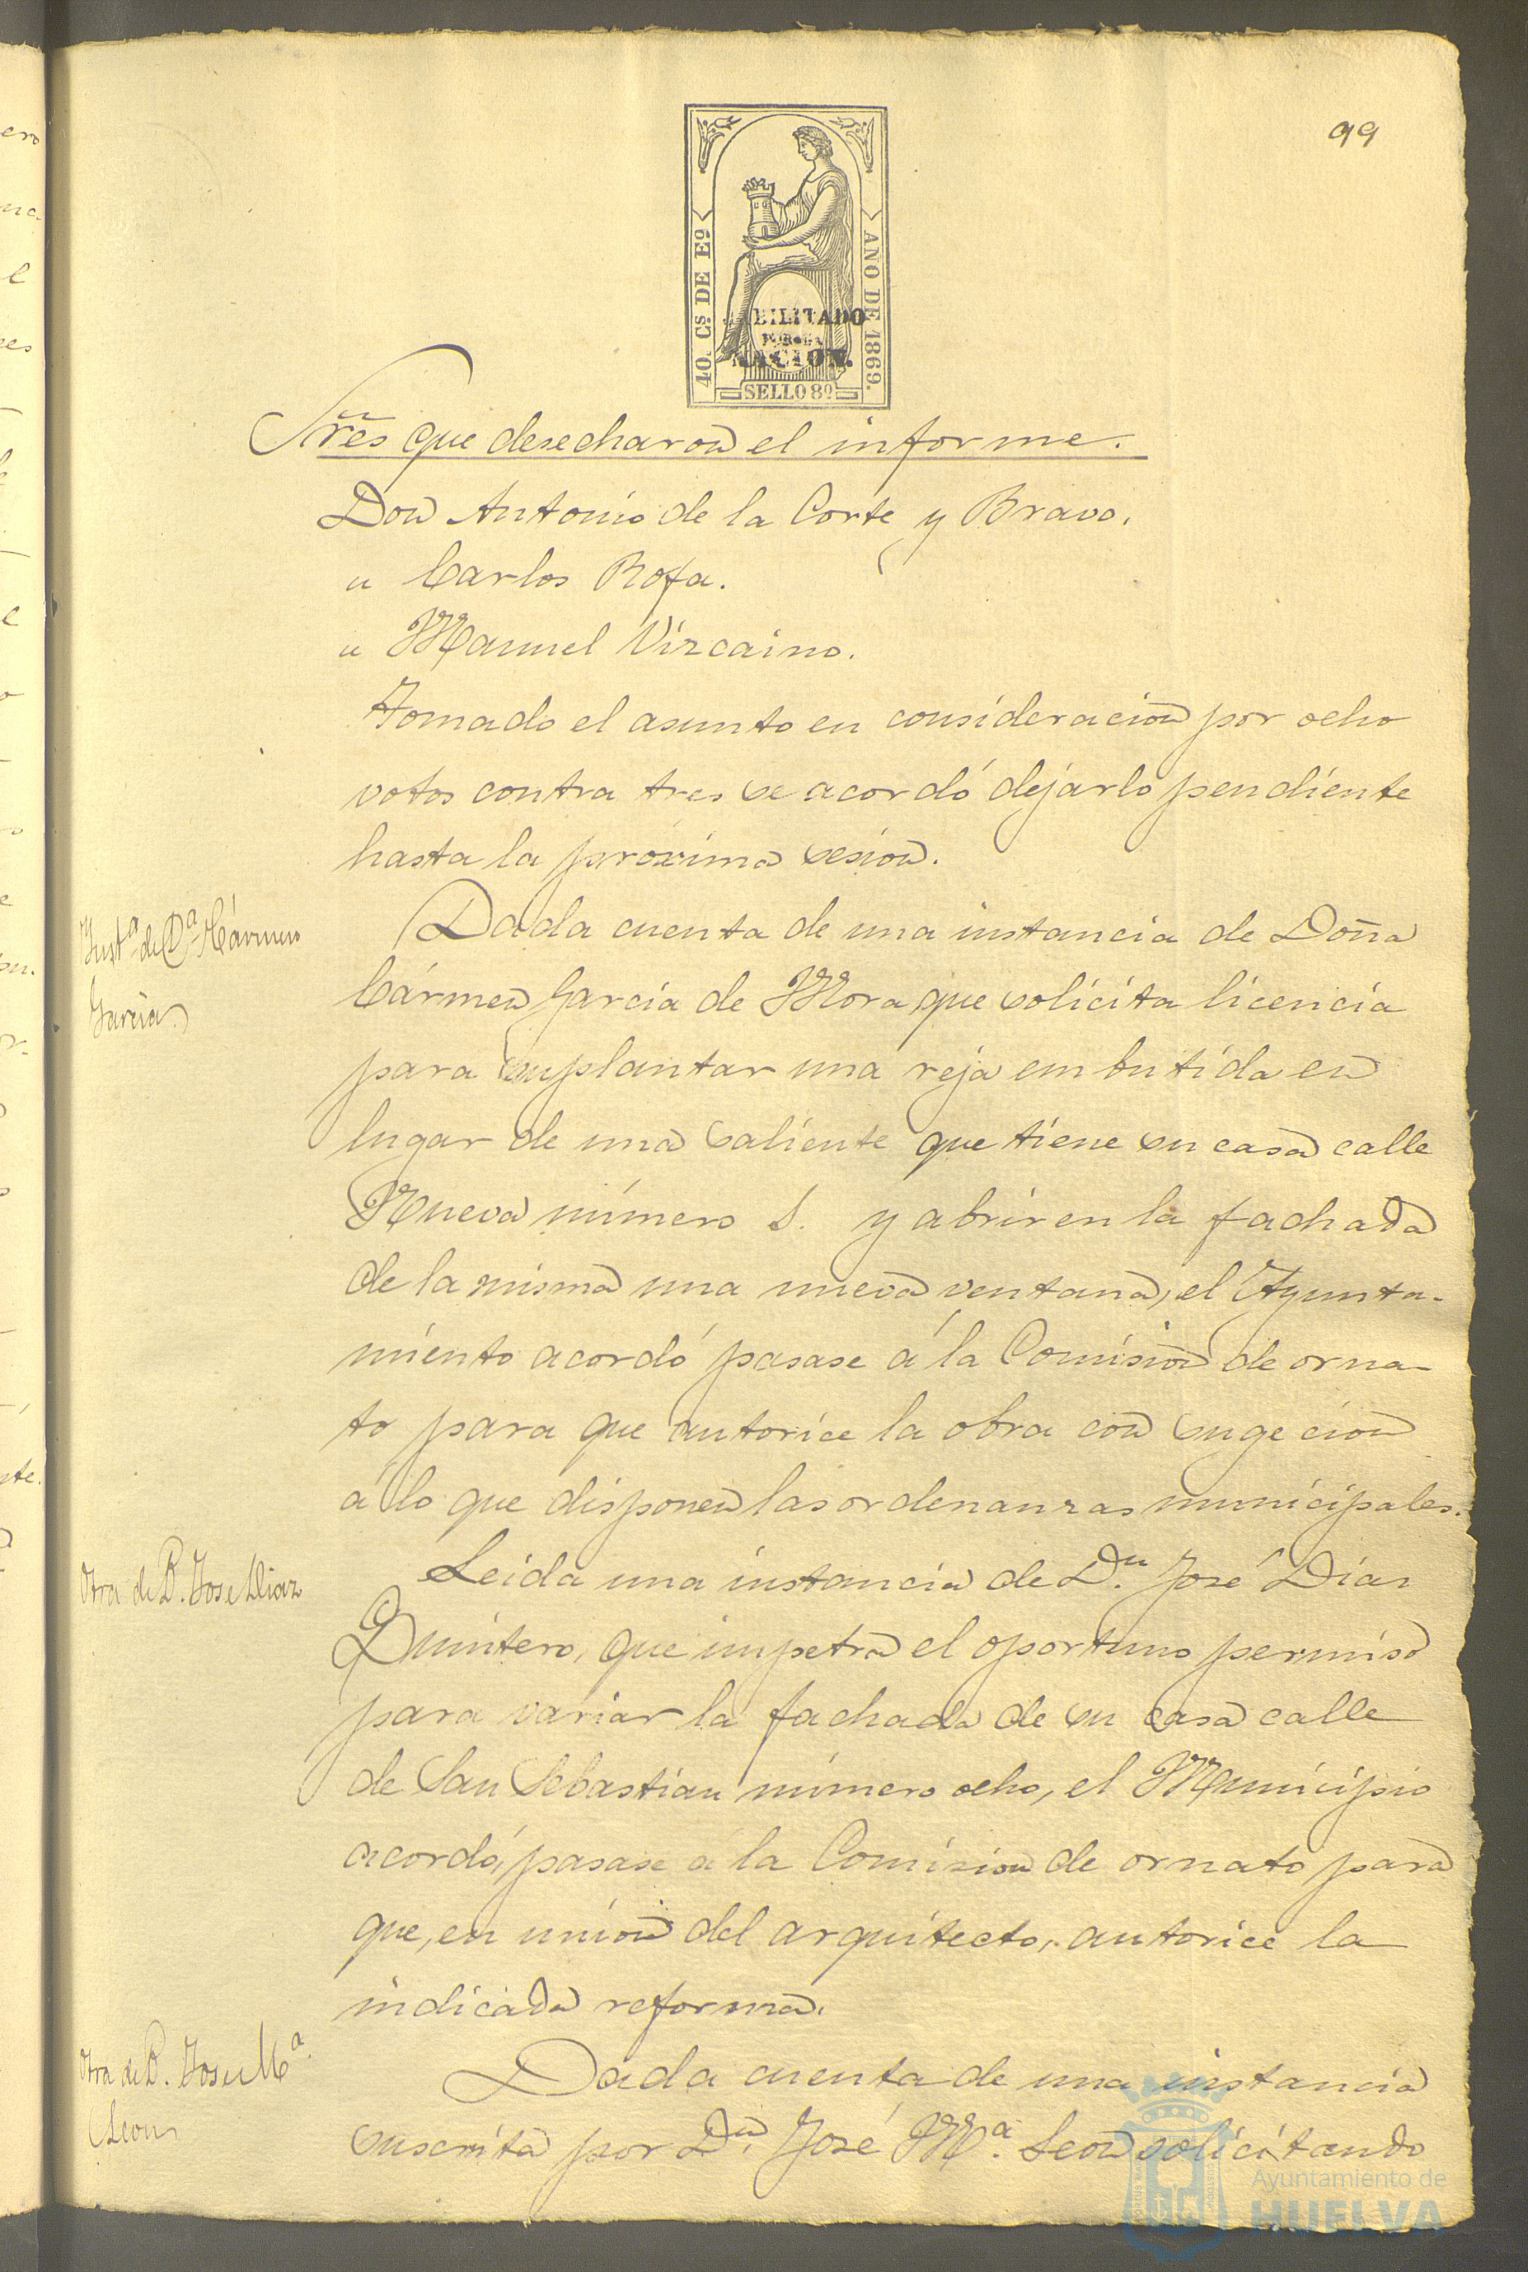 99
40. Cs. DE Eº.
AÑO DE 1869.
HABILITADO
POR LA
NACION.
SELLO 8º
Sres que desecharon el informe.
Don Antonio de la Corte y Bravo.
" Carlos Rofa.
" Manuel Vizcaino.
Tomado el asunto en consideracion por ocho
votos contra tres se acordó dejarlo pendiente
hasta la próxima sesion.
Instª de Dª Cármen
García
Dada cuenta de una instancia de Doña
Cármen García de Mora que solicita licencia
para implantar una reja embutida en
lugar de una saliente que tiene su casa calle
Nueva número y abrir en la fachada
de la misma una nueva ventana, el Ayunta-
miento acordó pasase á la Comision de orna-
to para que autorice la obra con sugecion
á lo que disponen las ordenanzas municipales.
Otra de D. Jose Diaz
Leida una instancia de Dn. José Diaz
Quintero, que impetra el oportuno permiso
para variar la fachada de su casa calle
de San Sebastian número ocho, el Municipio
acordó, pasase á la Comision de ornato para
que, en union del arquitecto, autorice la
indicada reforma.
Otra de D. Jose Mª.
Leon
Dada cuenta de una instancia
suscrita por Dn. José Mª. Leon solicitando
Ayuntamiento de
HUELVA